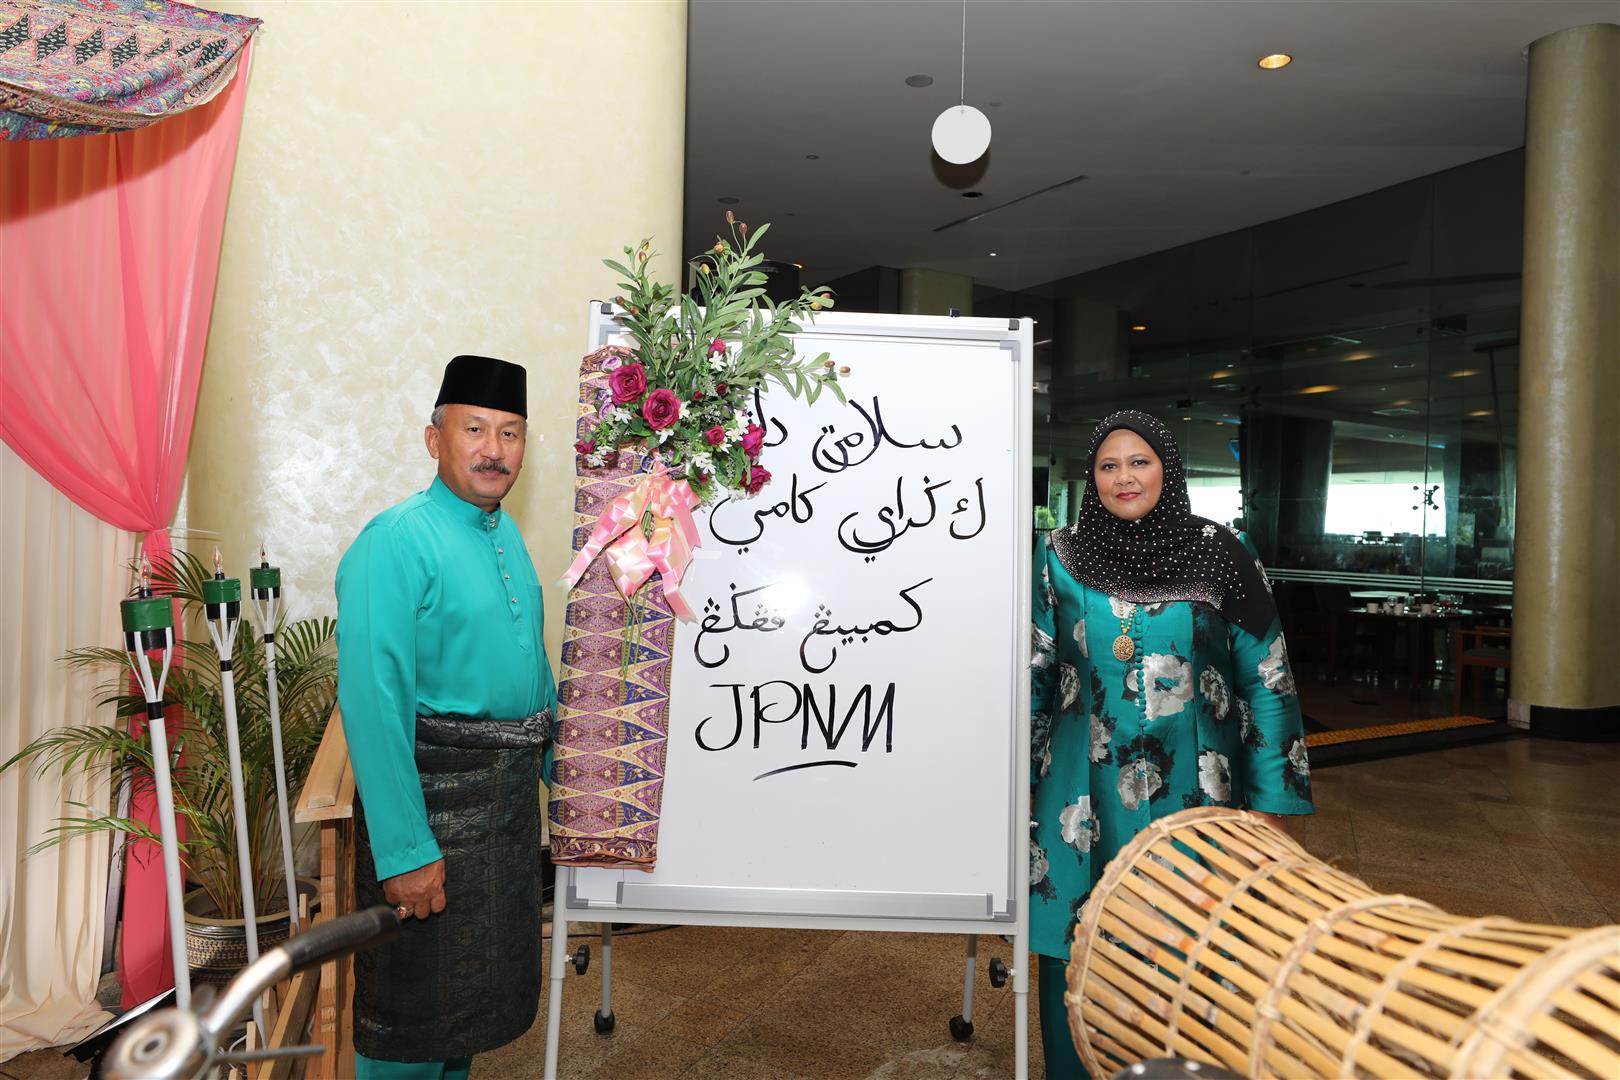 سلامت
ك ݢراي كامي
كمبيڠ ڤڠݢڠ
JPNM